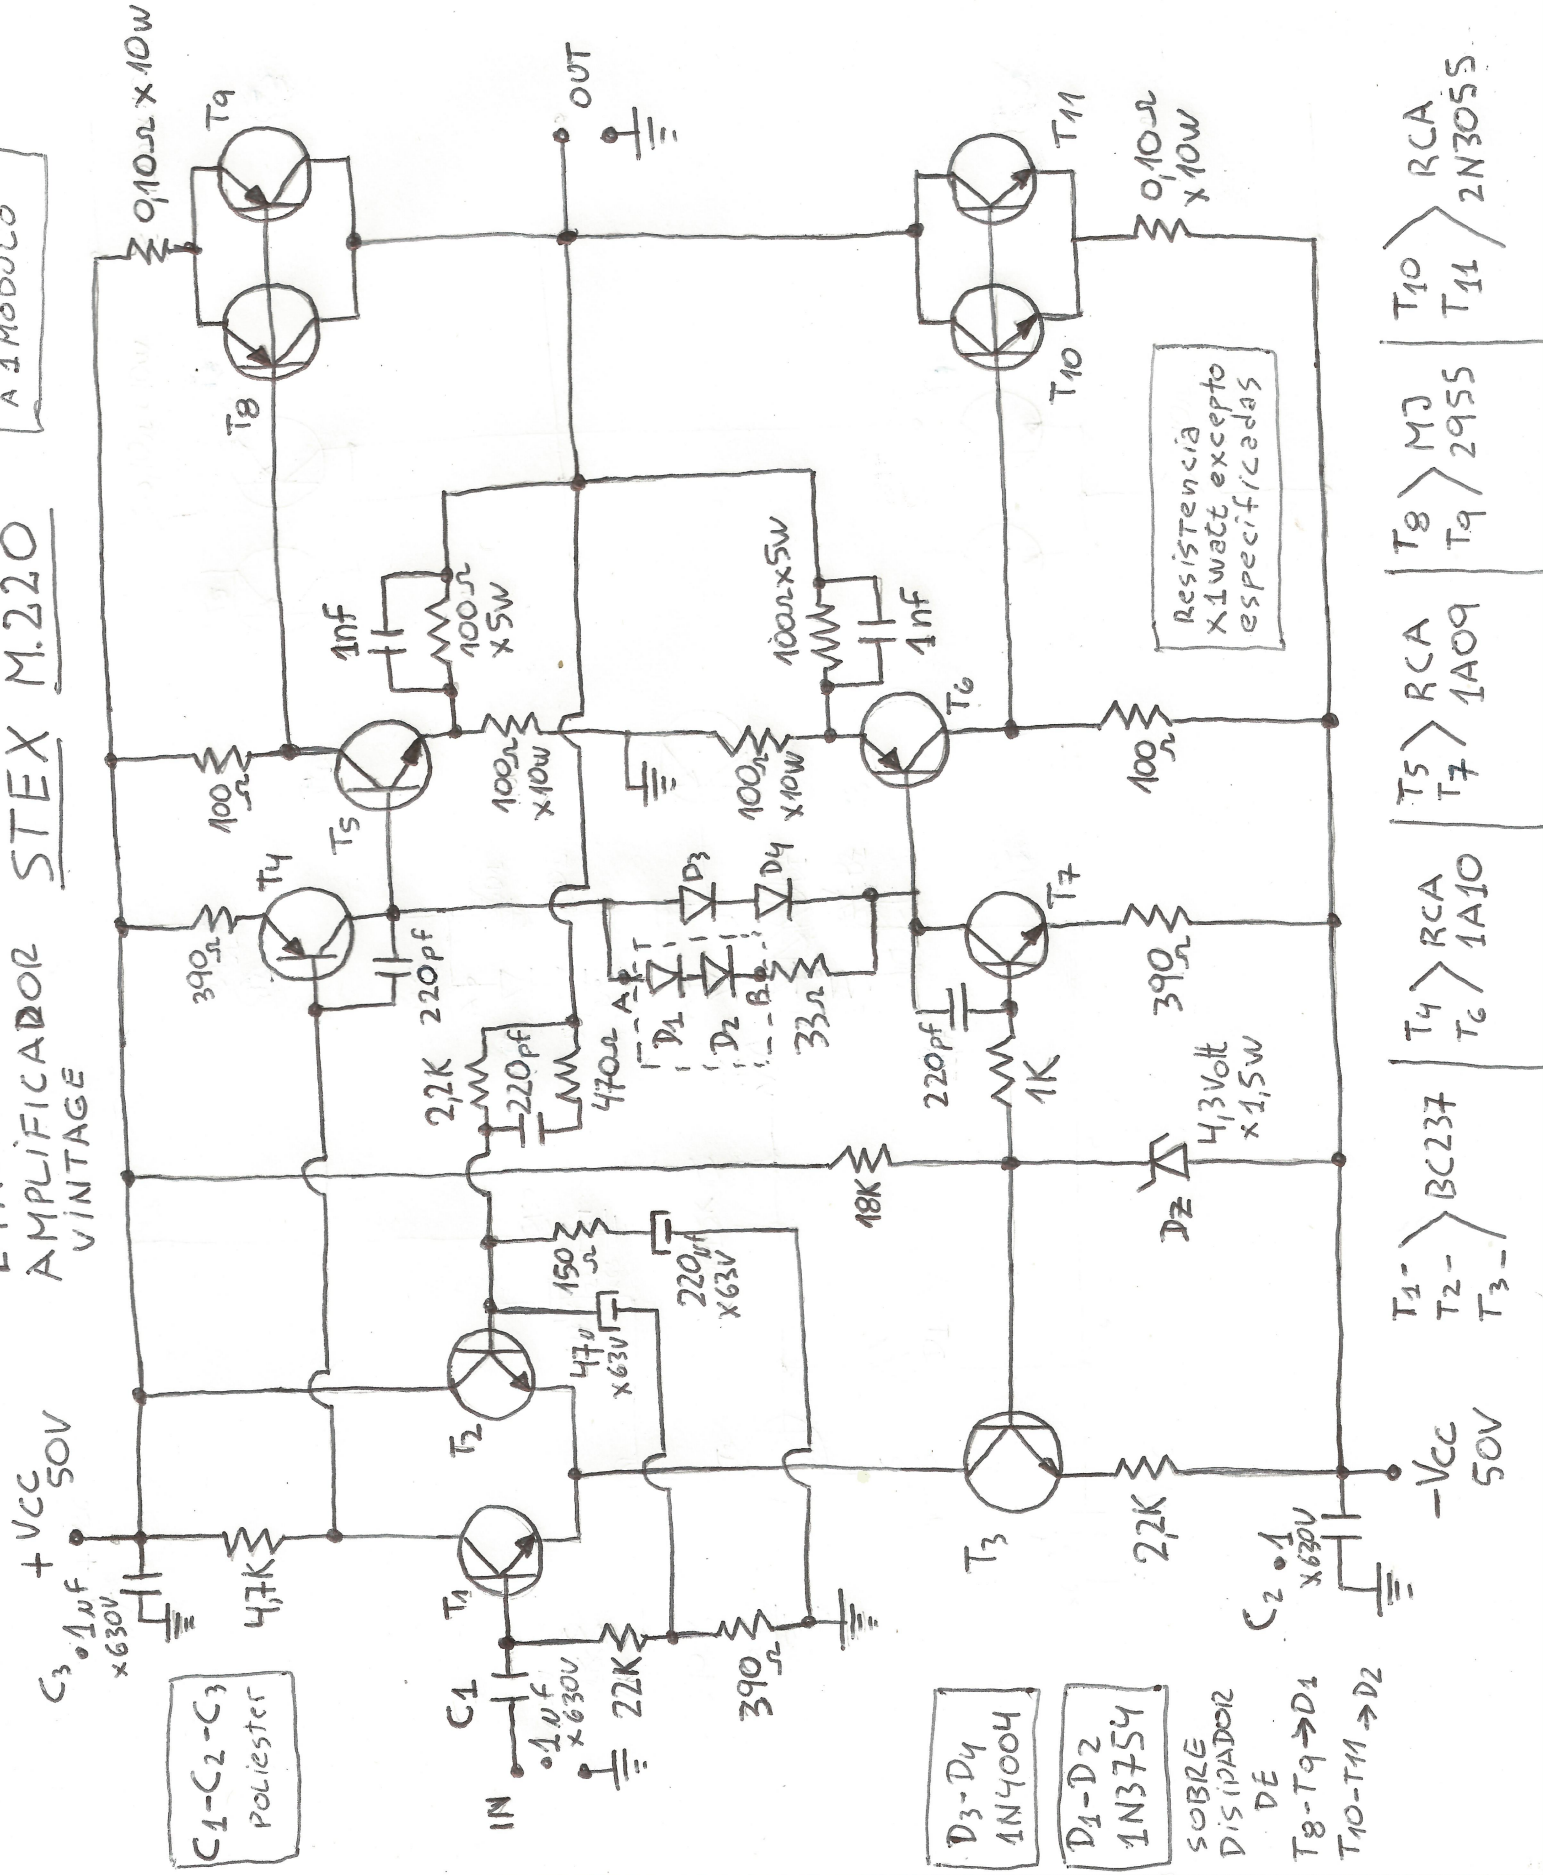 AMPLIFICADOR
VINTAGE
STEX M.220
A 1 MODULO
+VCC
50V
C3 .1µf
x630V
4,7K
C1-C2-C3
POLIESTER
IN
C1
.1µf
x630V
22K
390Ω
T1
T2
47µ
x63V
150Ω
220µf
x63V
2,2K
220pf
470Ω
390Ω
T4
220pf
100Ω
T5
1nf
100Ω
x5W
100Ω
x10W
T8
T9
0,10Ω x 10W
OUT
A
D1
D2
B
33Ω
D3
D4
100Ω
x10W
100Ωx5W
1nf
T6
T7
220pf
1K
18K
DZ
4,3Volt
x1,5W
390Ω
100Ω
T10
T11
0,10Ω
x10W
T3
2,2K
C2 .1
x630V
-VCC
50V
Resistencia
x1watt excepto
especificadas
D3-D4
1N4004
D1-D2
1N3754
SOBRE
DISIPADOR
DE
T8-T9→D1
T10-T11→D2
T1-
T2-
T3-
BC237
T4
T6
RCA
1A10
T5
T7
RCA
1A09
T8
T9
MJ
2955
T10
T11
RCA
2N3055